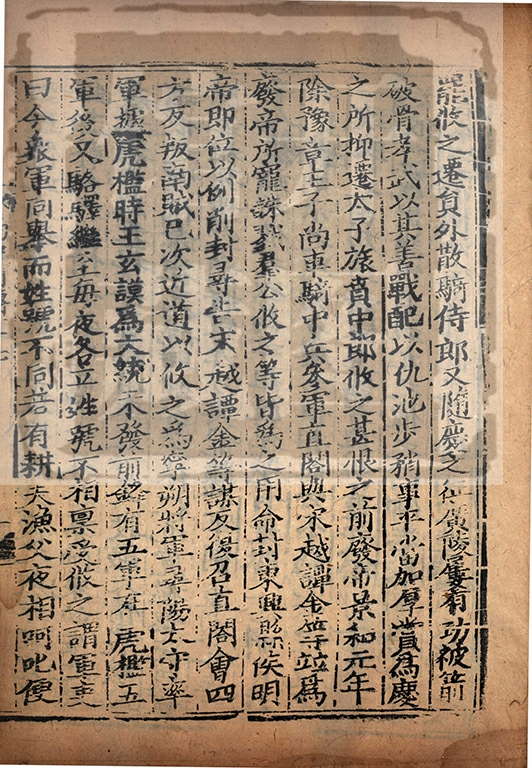 罷攸之遷員外散騎侍郎又隨慶之征廣陵屢有功被箭
破骨孝武以其善戰配以仇池步矟事平當加厚賞爲慶
之所抑遷太子旅賁中郎攸之甚恨之前廢帝景和元年
除豫章王子尚車騎中兵參軍直閤與宋越譚金等並爲
廢帝所寵誅戮羣公攸之等皆爲之用命封東興縣侯明
帝即位以例削封尋告宋越譚金等謀反復召直閤會四
方反叛南賊已次近道以攸之爲寧朔將軍尋陽太守率
軍據虎檻時王玄謨爲大統未發前鋒有五軍在虎檻五
軍後又駱驛繼至每夜各立姓號不相稟受攸之謂軍吏
曰今衆軍同舉而姓號不同若有耕夫漁父夜相呵叱便